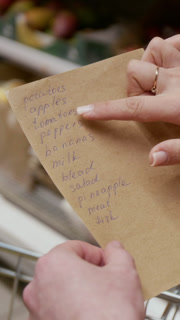 potatoes
apples
tomatoes
pepper
bananas
milk
bread
salad
pineapple
meat
fish